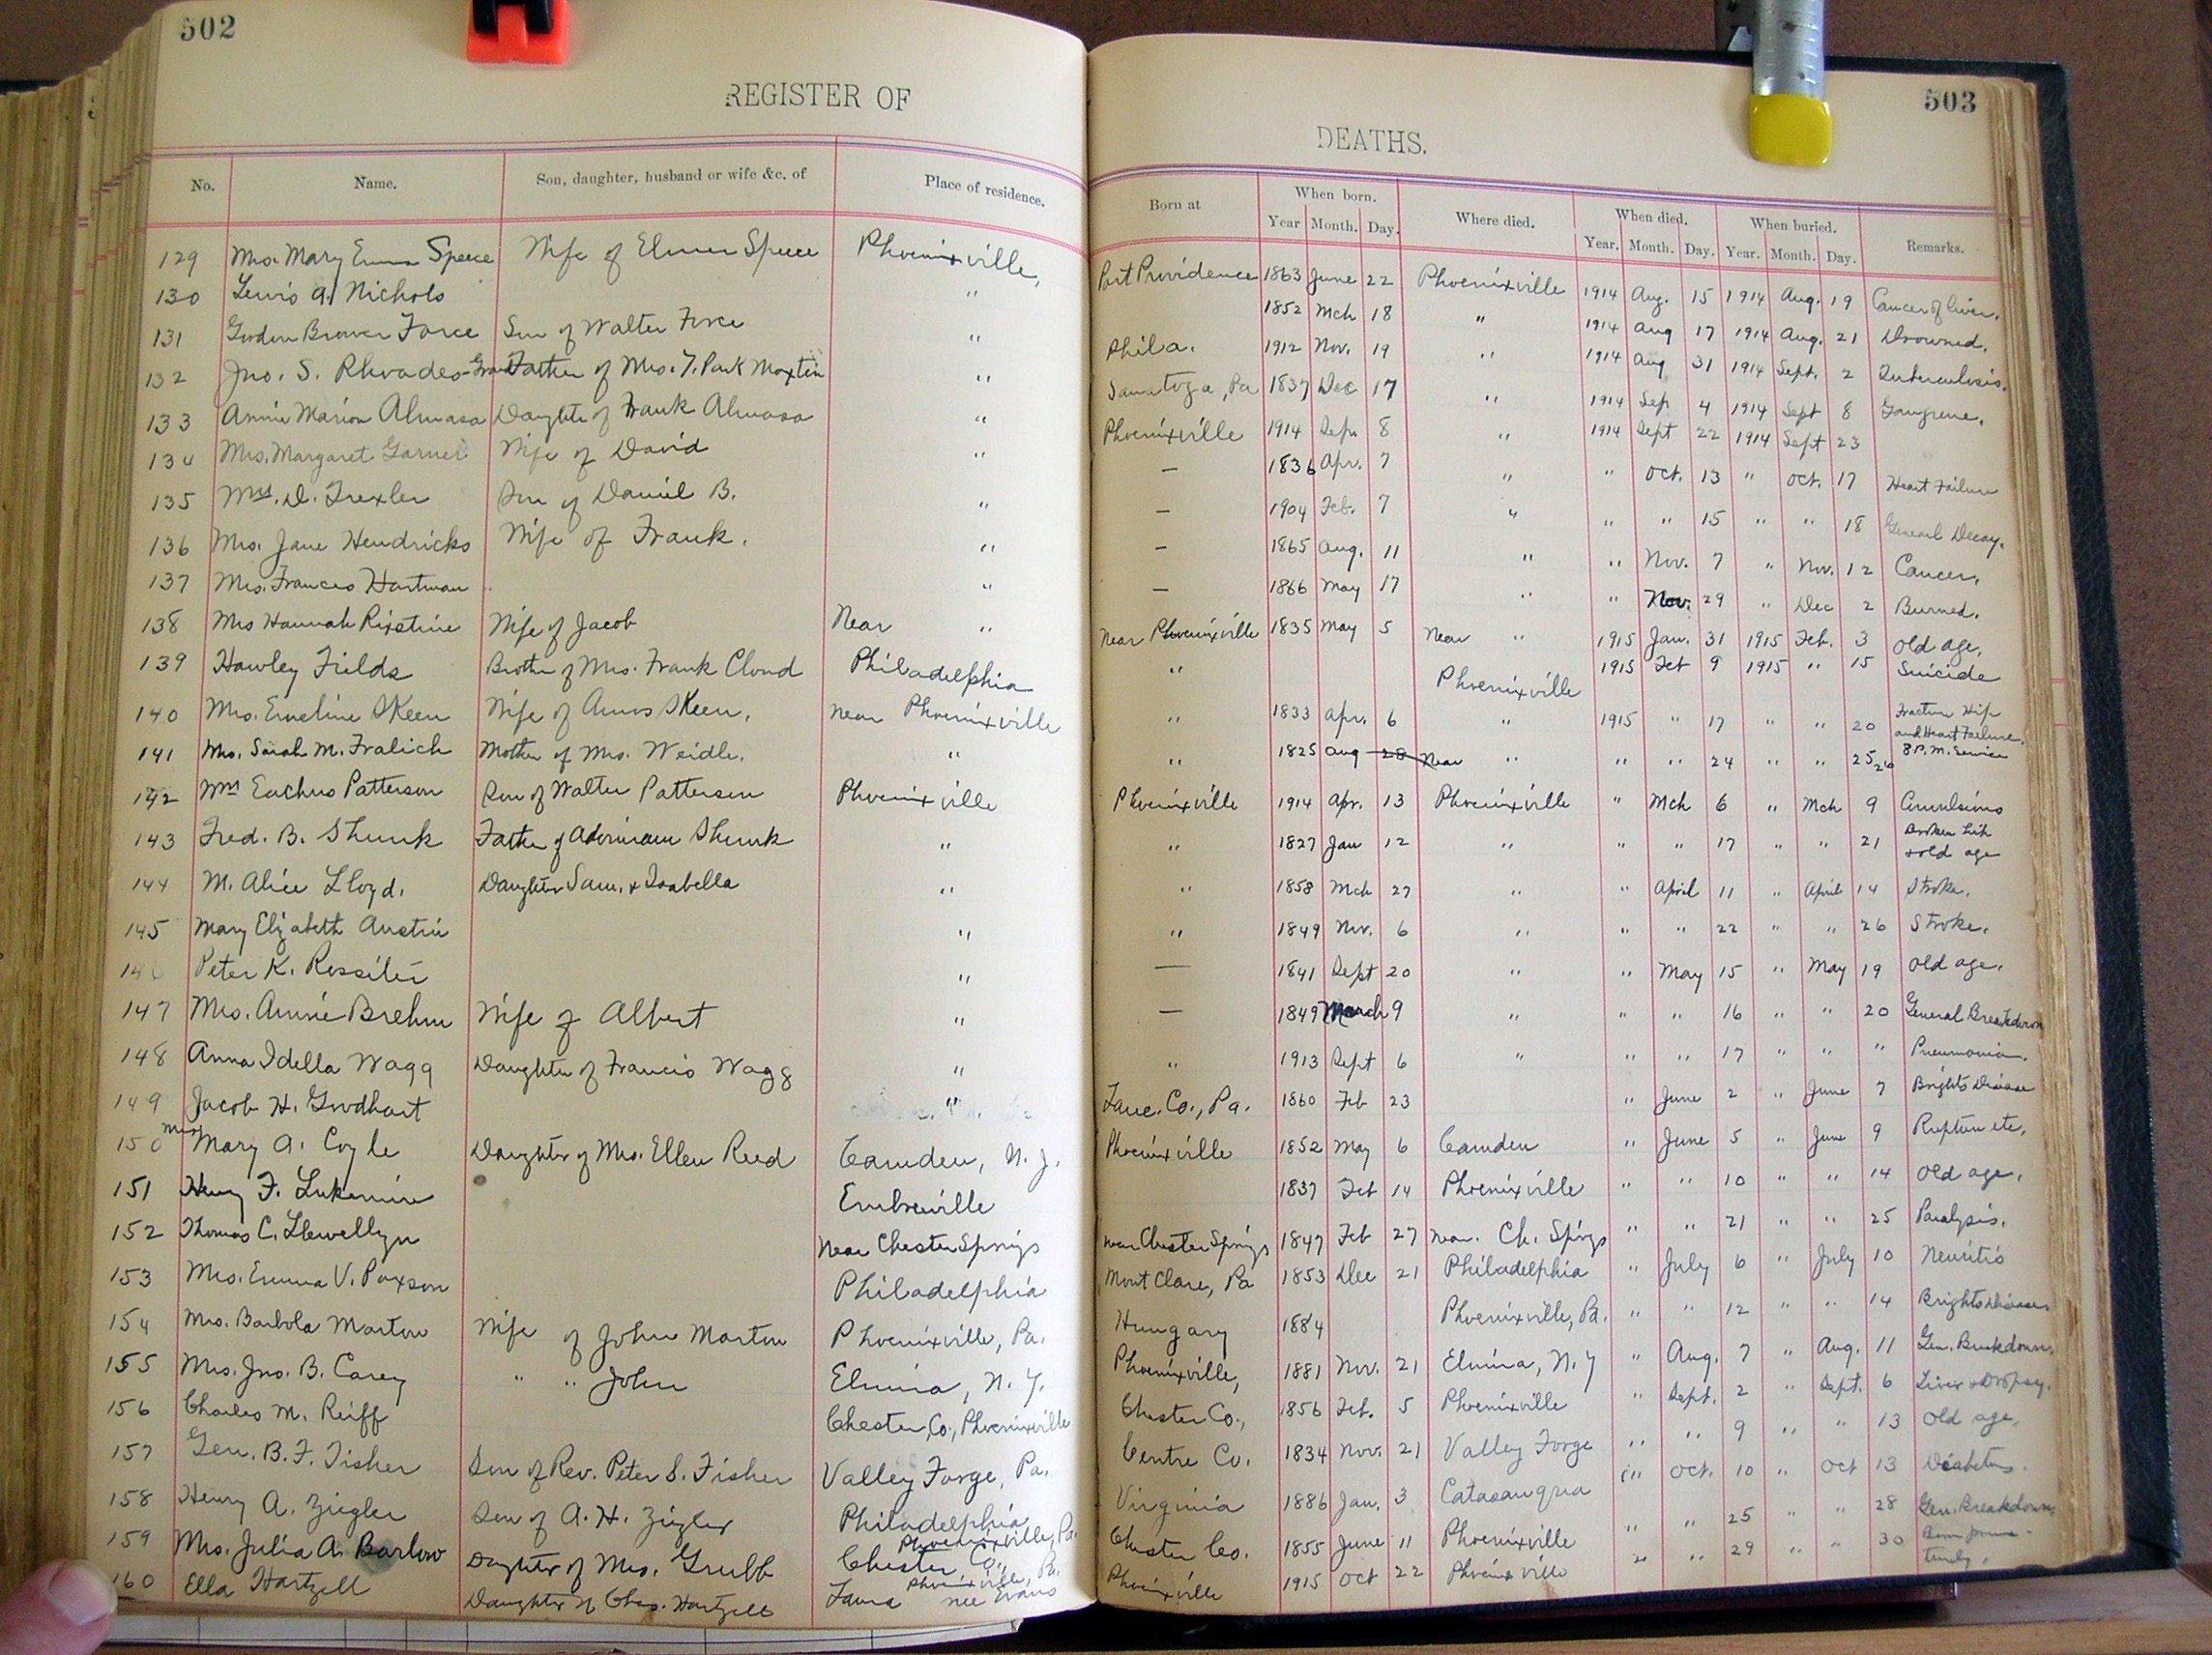 502
REGISTER OF
No. Name. Son, daughter, husband or wife &c. of Place of residence.
129 Mrs. Mary Emma Speece Wife of Elmer Speece Phoenixville,
130 Lewis A. Nichols "
131 Gordon Brower Force Son of Walter Force "
132 Jno. S. Rhoades- GrandFather of Mrs. T. Park Moxtin "
133 Annie Marion Almasa Daughte of Frank Almasa "
134 Mrs. Margaret Garner Wife of David "
135 D. Trexler Son of Daniel B. "
136 Mrs. Jane Hendricks Wife of Frank. "
137 Mrs. Frances Hartman "
138 Mrs Hannah Rixstine Wife of Jacob Near "
139 Hawley Fields Brother of Mrs. Frank Cloud Philadelphia
140 Mrs. Emeline Skeen Wife of Amos Skeen, near Phoenixville
141 Mrs. Sarah M. Fralich Mother of Mrs. Weidle. "
142 Wm Eachus Patterson Son of Walter Patterson Phoenixville
143 Fred. B. Shunk Father of Adoniram Shunk "
144 M. Alice Lloyd. Daughter Sam. & Isabella "
145 Mary Elizabeth Austin "
146 Peter K. Rossiter "
147 Mrs. Annie Brehm Wife of Albert "
148 Anna Idella Wagg Daughter of Francis Wagg "
149 Jacob H. Goodhart "
150 Mrs Mary A. Coyle Daughter of Mrs. Ellen Reed Camden, N. J.
151 Henry F. Lukemire Embreeville
152 Thomas C. Llewellyn Near Chester Springs
153 Mrs. Emma V. Paxson Philadelphia
154 Mrs. Barbola Marton Wife of John Marton Phoenixville, Pa.
155 Mrs. Jno. B. Carey " " John Elmira, N. Y.
156 Charles M. Reiff Chester Co., Phoenixville
157 Gen. B. F. Fisher Son of Rev. Peter S. Fisher Valley Forge, Pa.
158 Henry A. Ziegler Son of A. H. Ziegler Philadelphia
159 Mrs. Julia A. Barlow Daughter of Mrs. Grubb Chester Co., Phoenixville, Pa.
160 Ella Hartzell Daughter of Chas. Hartzell Phoenixville, Pa.
Laura nee Evans
503
DEATHS.
Born at When born. Where died. When died. When buried. Remarks.
Year Month. Day. Year. Month. Day. Year. Month. Day.
Port Providence 1863 June 22 Phoenixville 1914 Aug. 15 1914 Aug. 19 Cancer of liver.
1852 Mch 18 " 1914 Aug 17 1914 Aug. 21 Drowned.
Phila. 1912 Nov. 19 " 1914 Aug 31 1914 Sept. 2 Tuberculosis.
Sanatoga, Pa 1837 Dec 17 " 1914 Sep 4 1914 Sept 8 Gangrene.
Phoenixville 1914 Sep. 8 " 1914 Sept 22 1914 Sept 23
— 1836 Apr. 7 " " Oct. 13 " Oct. 17 Heart Failure
— 1904 Feb. 7 " " " 15 " " 18 General Decay.
— 1865 Aug. 11 " " Nov. 7 " Nov. 12 Cancer.
— 1866 May 17 " " Nov. 29 " Dec 2 Burned.
Near Phoenixville 1835 May 5 Near " 1915 Jan. 31 1915 Feb. 3 Old age.
" Phoenixville 1915 Feb 9 1915 " 15 Suicide
" 1833 Apr. 6 " 1915 " 17 " " 20 Fracture Hip and Heart Failure.
" 1825 Aug 28 Near " " " 24 " " 25 26 8 P. M. Service
Phoenixville 1914 Apr. 13 Phoenixville " Mch 6 " Mch 9 Convulsions
" 1827 Jan 12 " " " 17 " " 21 Broken hip & old age
" 1858 Mch 27 " " April 11 " April 14 Stroke.
" 1849 Nov. 6 " " " 22 " " 26 Stroke.
— 1841 Sept 20 " " May 15 " May 19 Old age.
— 1849 March 9 " " " 16 " " 20 General Breakdown
" 1913 Sept 6 " " " 17 " " " Pneumonia.
Lanc. Co., Pa. 1860 Feb 23 " June 2 " June 7 Brights Disease
Phoenixville 1852 May 6 Camden " June 5 " June 9 Rupture etc.
1837 Feb 14 Phoenixville " " 10 " " 14 Old age.
near Chester Springs 1847 Feb 27 near Ch. Spirgs " " 21 " " 25 Paralysis.
Mont Clare, Pa 1853 Dec 21 Philadelphia " July 6 " July 10 Neuritis
Hungary 1884 Phoenixville, Pa. " " 12 " " 14 Brights Disease.
Phoenixville, 1881 Nov. 21 Elmira, N. Y " Aug. 7 " Aug. 11 Gen. Breakdown.
Chester Co., 1856 Feb. 5 Phoenixville " Sept. 2 " Sept. 6 Liver & Dropsy.
Centre Co. 1834 Nov. 21 Valley Forge " " 9 " " 13 Old age.
Virginia 1886 Jan. 3 Catasauqua " Oct. 10 " Oct 13 Diabetes.
Chester Co. 1855 June 11 Phoenixville " " 25 " " 28 Gen. Breakdown.
Phoenixville 1915 Oct 22 Phoenixville " " 29 " " 30